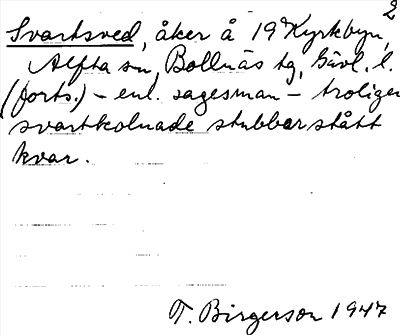 2
Svartsved, åker å 19 Kyrkbyn,
Alfta sn, Bollnäs tg, Gävl. l.
(forts.) – enl. sagesman – troligen
svartkolnade stubbar stått
kvar.
T. Birgerson 1947